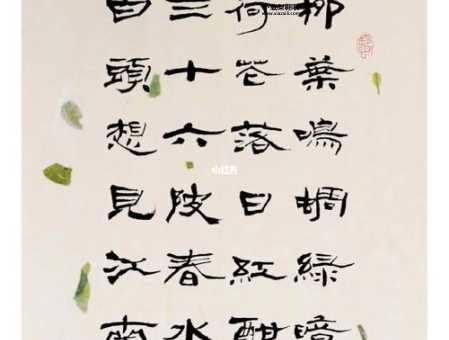 柳葉鳴蜩綠暗
荷花落日紅酣
三十六陂春水
白頭想見江南
小红书